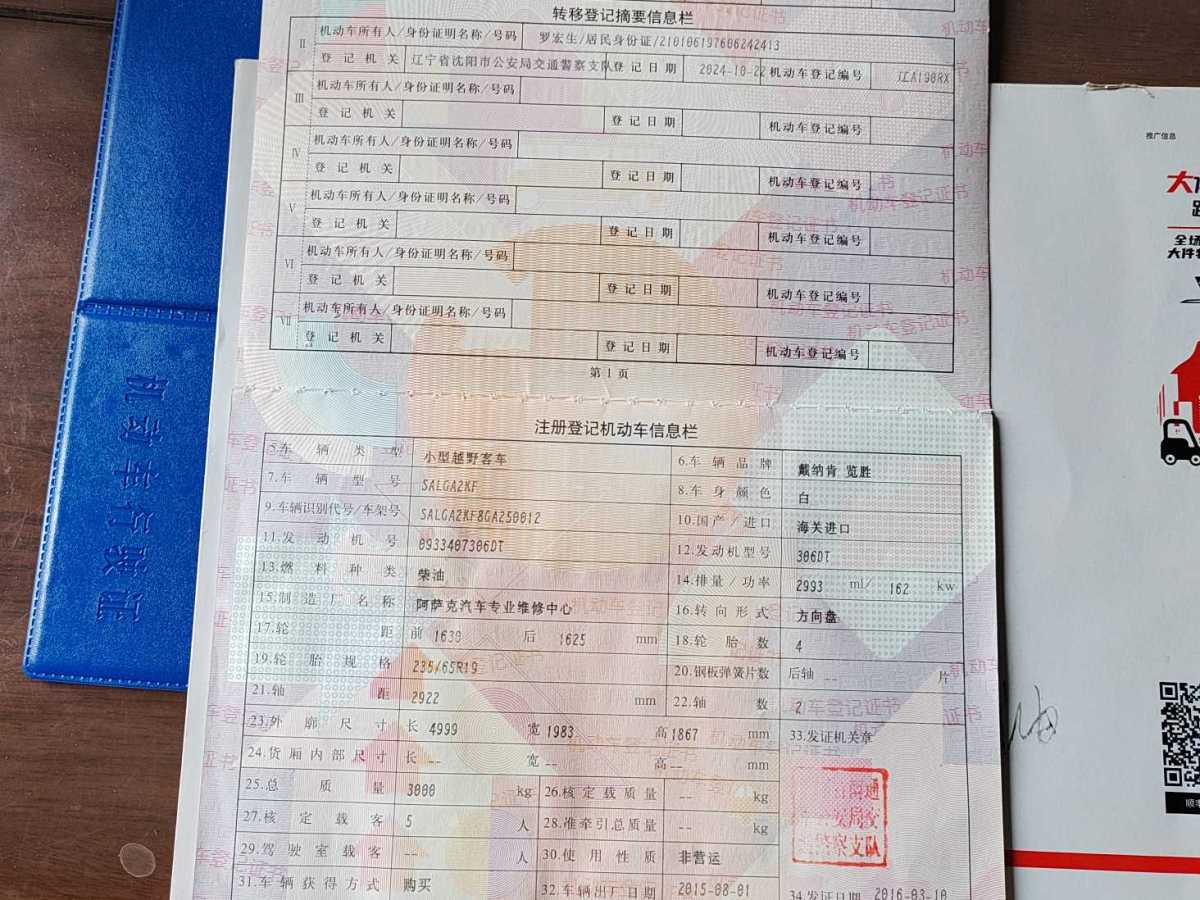 转移登记摘要信息栏
Ⅱ 机动车所有人/身份证明名称/号码 罗宏生/居民身份证/210106197606242413
登记机关 辽宁省沈阳市公安局交通警察支队 登记日期 2024-10-22 机动车登记编号 辽A190RX
Ⅲ 机动车所有人/身份证明名称/号码
登记机关 登记日期 机动车登记编号
Ⅳ 机动车所有人/身份证明名称/号码
登记机关 登记日期 机动车登记编号
Ⅴ 机动车所有人/身份证明名称/号码
登记机关 登记日期 机动车登记编号
Ⅵ 机动车所有人/身份证明名称/号码
登记机关 登记日期 机动车登记编号
Ⅶ 机动车所有人/身份证明名称/号码
登记机关 登记日期 机动车登记编号
第1页
注册登记机动车信息栏
5.车辆类型 小型越野客车 6.车辆品牌 戴纳肯 览胜
7.车辆型号 SALGA2KF 8.车身颜色 白
9.车辆识别代号/车架号 SALGA2KF8GA250012 10.国产/进口 海关进口
11.发动机号 0933407306DT 12.发动机型号 306DT
13.燃料种类 柴油 14.排量/功率 2993 ml/ 162 kw
15.制造厂名称 阿萨克汽车专业维修中心 16.转向形式 方向盘
17.轮距 前 1630 后 1625 mm 18.轮胎数 4
19.轮胎规格 235/65R19 20.钢板弹簧片数 后轴 -- 片
21.轴距 2922 mm 22.轴数 2
23.外廓尺寸 长 4999 宽 1983 高 1867 mm 33.发证机关章
24.货厢内部尺寸 长 -- 宽 -- 高 -- mm
25.总质量 3000 kg 26.核定载质量 -- kg
27.核定载客 5 人 28.准牵引总质量 -- kg
29.驾驶室载客 -- 人 30.使用性质 非营运
31.车辆获得方式 购买 32.车辆出厂日期 2015-08-01 34.发证日期 2016-03-10
机动车行驶证
推广信息